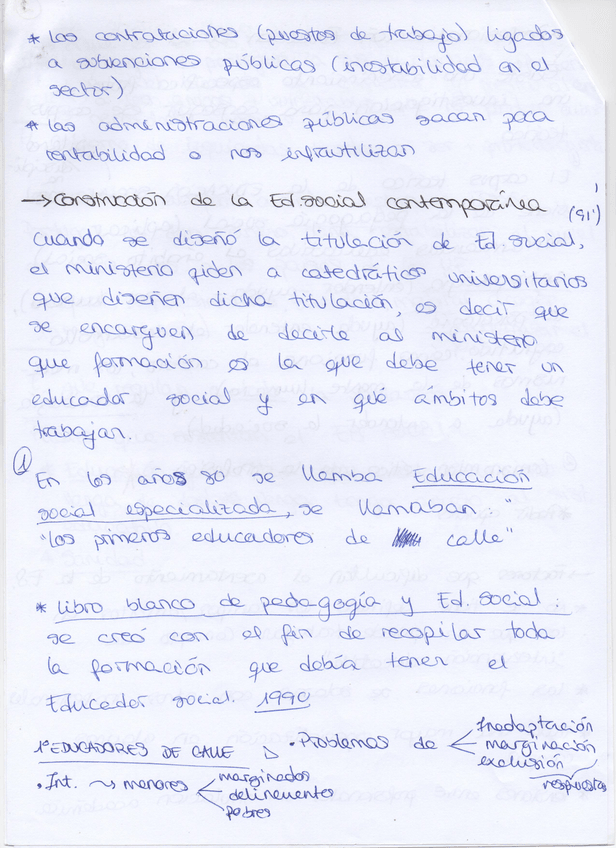 * Las contrataciones (puestos de trabajo) ligados
a subvenciones públicas (inestabilidad en el
sector)
* Las administraciones públicas sacan poca
rentabilidad o nos infrautilizan
→ Construcción de la Ed social contemporánea (91')
Cuando se diseñó la titulación de Ed. social,
el ministerio piden a catedráticos universitarios
que diseñen dicha titulación, es decir que
se encarguen de decirle al ministerio
que formación es la que debe tener un
educador social y en qué ámbitos debe
trabajar.
① En los años 80 se llamba Educación
social especializada, se llamaban:"
"los primeros educadores de calle"
* Libro blanco de pedagogía y Ed. social:
se creó con el fin de recopilar toda
la formación que debía tener el
Educador social. 1990
1º EDUCADORES DE CALLE
• Problemas de
Inadaptación
marginación
exclusión
respuesta
• Int. → menores
marginados
delincuentes
pobres